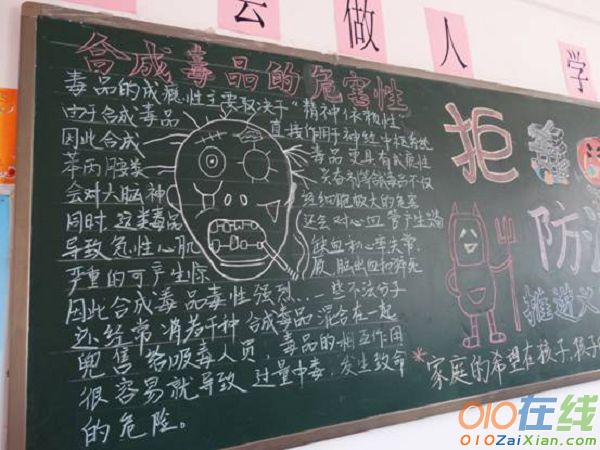 会 做 人 学
合成毒品的危害性
毒品的成瘾性主要取决于"精神依赖性"
由于合成毒品 直接作用于神经中枢系统
因此合成 毒品更具有成瘾性
苯丙胺类 兴奋剂合成毒品不仅
会对大脑神 经细胞放大的危害
同时,这类毒品 还会对心血管产生
导致急性心肌 缺血和心率失常
严重的可产生惊 厥、脑出血和猝死
因此合成毒品毒性强烈...一些不法分子
还经常将若干种合成毒品混合在一起
售给吸毒人员,毒品的相互作用
很容易就导致过量中毒,发生致命
的危险。
拒毒
防
推进
*家庭的希望在孩子,孩子
010在线
010ZaiXian.com